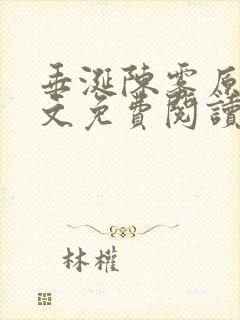 垂涎陳雾原
文免費閱讀
林權